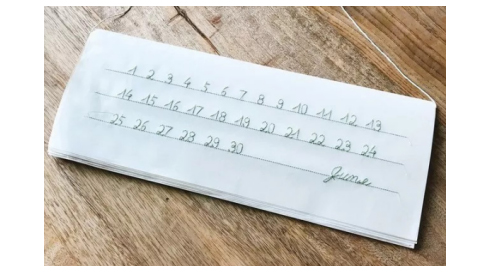 1 2 3 4 5 6 7 8 9 10 11 12 13
14 15 16 17 18 19 20 21 22 23 24
25 26 27 28 29 30
June